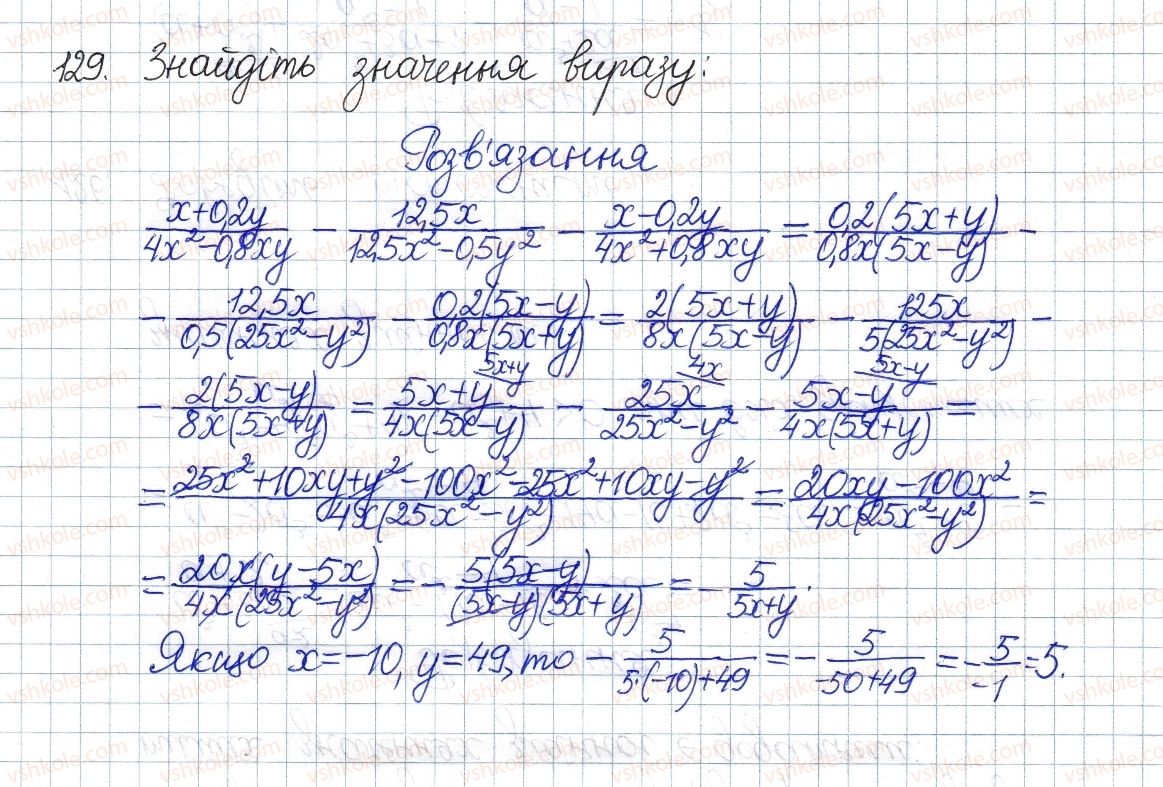 129. Знайдіть значення виразу:
Розв'язання
(x+0,2y)/(4x²-0,8xy) - (12,5x)/(12,5x²-0,5y²) - (x-0,2y)/(4x²+0,8xy) = (0,2(5x+y))/(0,8x(5x-y)) -
- (12,5x)/(0,5(25x²-y²)) - (0,2(5x-y))/(0,8x(5x+y)) = (2(5x+y))/(8x(5x-y)) - (125x)/(5(25x²-y²)) -
5x+y 4x 5x-y
- (2(5x-y))/(8x(5x+y)) = (5x+y)/(4x(5x-y)) - (25x)/(25x²-y²) - (5x-y)/(4x(5x+y)) =
= (25x²+10xy+y²-100x²-25x²+10xy-y²)/(4x(25x²-y²)) = (20xy-100x²)/(4x(25x²-y²)) =
= (20x(y-5x))/(4x(25x²-y²)) = - (5(5x-y))/((5x-y)(5x+y)) = - 5/(5x+y).
Якщо x=-10, y=49, то - 5/(5·(-10)+49) = - 5/(-50+49) = - 5/(-1) = 5.